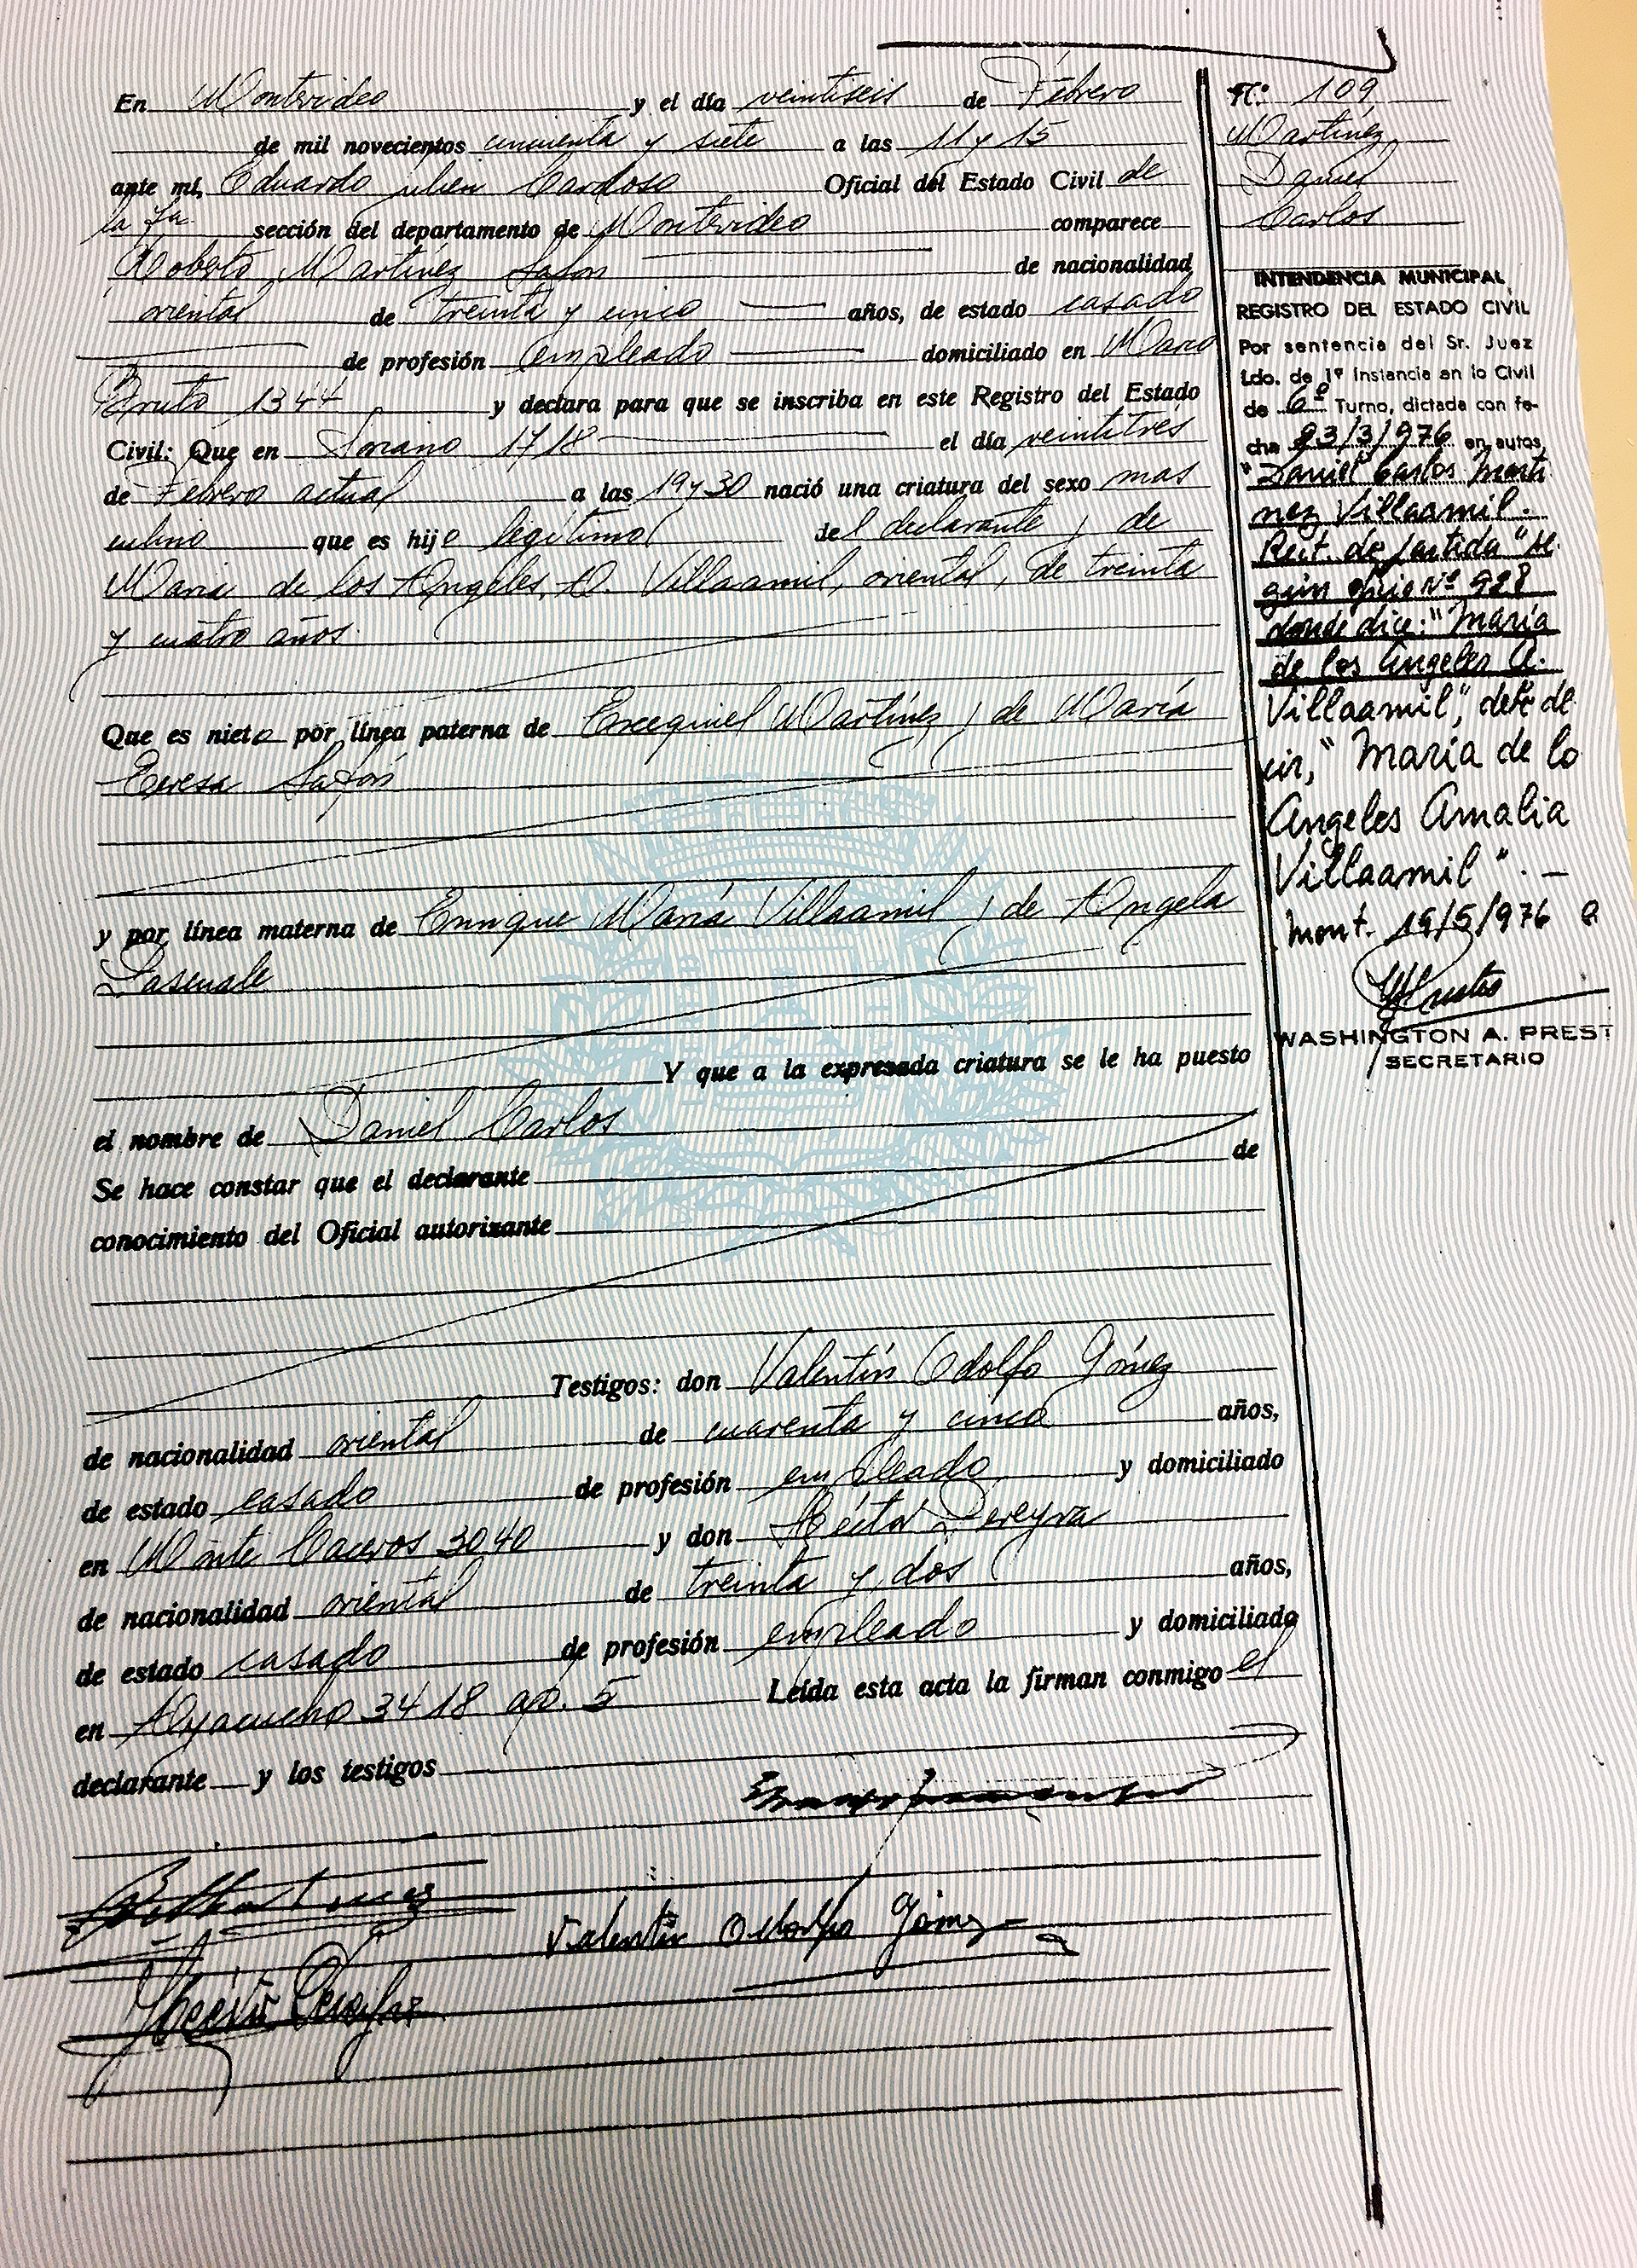 En Montevideo y el día veintiseis de Febrero
de mil novecientos cincuenta y siete a las 11 y 15
ante mí, Eduardo Julien Cardoso Oficial del Estado Civil de
la 7ª sección del departamento de Montevideo comparece
Roberto Martínez Safon de nacionalidad
oriental de treinta y cinco años, de estado casado
de profesión empleado domiciliado en Marco
Bruto 1344 y declara para que se inscriba en este Registro del Estado
Civil: Que en Soriano 1718 el día veintitrés
de Febrero actual a las 19 y 30 nació una criatura del sexo mas
culino que es hijo legítimo del declarante y de
María de los Angeles A. Villaamil, oriental, de treinta
y cuatro años.
Que es nieto por línea paterna de Exequiel Martínez y de María
Teresa Safón
y por línea materna de Enrique María Villaamil y de Angela
Pascuale
Y que a la expresada criatura se le ha puesto
el nombre de Daniel Carlos
Se hace constar que el declarante de
conocimiento del Oficial autorizante
Testigos: don Valentín Odolfo Gómez
de nacionalidad oriental de cuarenta y cinco años,
de estado casado de profesión empleado y domiciliado
en Monte Caseros 3040 y don Héctor Pereyra
de nacionalidad oriental de treinta y dos años,
de estado casado de profesión empleado y domiciliado
en Ayacucho 3418 ap. 5 Leída esta acta la firman conmigo el
declarante y los testigos
Valentín Odolfo Gómez
Héctor Pereyra
Nº 109
Martínez
Daniel
Carlos
INTENDENCIA MUNICIPAL
REGISTRO DEL ESTADO CIVIL
Por sentencia del Sr. Juez
Ldo. de 1º Instancia en lo Civil
de 6º Turno, dictada con fe-
cha 23/3/976 en autos
"Daniel Carlos Martí
nez Villaamil.
Rect. de partida" se
gún oficio Nº 928
donde dice: "María
de los Angeles A.
Villaamil", debe de
cir, "María de lo
Angeles Amalia
Villaamil". –
Mont. 19/5/976
WASHINGTON A. PREST
SECRETARIO